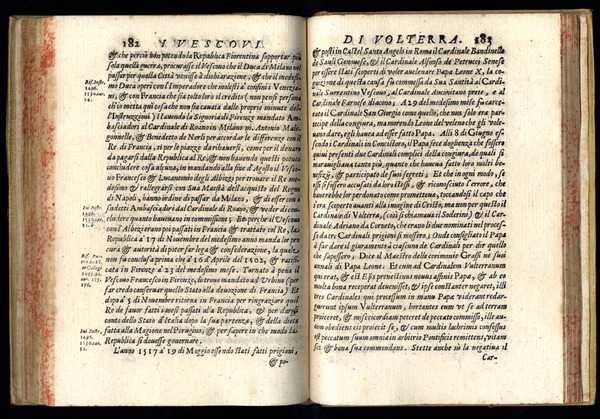 182 I VESCOVI
& che perciò non potendo la Republica Fiorentina sopportar più
sola quella guerra, procurasse il Vescovo che il Duca di Milano nel
passar per quella Città venisse à dichiarazione, & che il medesi-
mo Duca operi con l'Imperadore che inciti à cuisini i Venezia-
ni, & con Francia che sia tolto loro il credito (non pensi persona
ch'io metta quì cosa che non sia cavata dalle proprie minute del-
l'Instruzzioni) Havendo la Signoria di Firenze mandato Am-
basciadori al Cardinale di Roano in Milano M. Antonio Male-
gonnelle, & Benedetto de Nerli per accordar le differenze con il
Re di Francia, sì per le piazze da rihaversi, come per il denaro
da pagarsi dalla Republica al Re, & non havendo questi potuto
conchiudere cosa alcuna, in mandando alla fine d'Agosto il Vesco-
vo Francesco & Lucantonio degli Albizzi per trovare il Re me-
desimo & rallegrarsi con Sua Maestà dell'acquisto del Regno
di Napoli, hanno ordine di passar da Milano, & di esser con i
sudetti Ambasciadori dal Cardinale di Roano, & veder di con-
chiudere quanto havevano in commissione; Et perche il Vescovo
con l'Albizzi eran più passati in Francia & trattato col Re, la
Republica à 17 di Novembre del medesimo anno manda lor pro-
cura & autorità di poter far lega & confederazione, la quale
non fu conclusa prima che à 16 d'Aprile del 1502, & ratifi-
cata in Firenze à 23 del medesimo mese. Turnato à pena il
Vescovo Francesco in Firenze, lo trovo mandato ad Urbino (per
far credo conservar quello Stato alla devozione di Francia) Et
dopo à 5 di Novembre ritorna in Francia per ringraziare quel
Re de favor fatti i mesi passati alla Republica, & per dargli
conto dello Stato d'Italia dopo la sua partenza, & della dieta
fatta alla Magione nel Perugino, & per sapere in che modo la
Republica si dovesse governare.
L'anno 1517 à 19 di Maggio essendo stati fatti prigioni,
& po-
DI VOLTERRA. 183
& posti in Castel Santo Angelo in Roma il Cardinale Bandinello
de Sauli Genovese, & il Cardinale Alfonso de Petrucci Senese
per essere stati scoperti di voler avelenare Papa Leone X, la co-
gnizione di questa causa fù commessa da Sua Santità al Cardi-
nale Surrentino Vescovo, al Cardinale Anconitano prete, & al
Cardinale Farnese diacono, A 29 del medesimo mese fù carce-
rato il Cardinale San Giorgio come quello, che non solo era par-
tecipe della congiura, ma morendo Leone del veleno che gli vole-
vano dare, egli haveva ad esser fatto Papa. Alli 8 di Giugno es-
sendo i Cardinali in Concistoro, il Papa fece doglienze che fossero
quivi presenti due Cardinali complici della congiura, de quali si
maravigliava tanto più, quanto che haveva fatto loro molti be-
nefizij, & participato de suoi segreti; Et che in ogni modo, se
essi si fossero accusati da loro stessi, & riconosciuto l'errore, che
haverebbe lor perdonato come promettea, toccandosi il capo che
l'era scoperto avanti alla imagine di Cristo, ma non per questo il
Cardinale di Volterra, (così si chiamava il Soderini) & il Car-
dinale Adriano da Corneto, che erano i due nominati nel proces-
so da tre Cardinali prigioni si mossero; Onde consigliato il Papa
à far dare il giuramento à ciascuno de Cardinali per dir quello
che sapessero; Dice il Maestro delle cerimonie Grassi ne suoi
annali di Papa Leone. Et cum ad Cardinalem Vulterranum
qui erat, & est Episcopellissimus novus Papa, & ab eo
multa bona receperat devenisset, & ipse constanter negaret, illi
tres Cardinales qui processum in manu Papæ viderant redar-
guerunt ipsum Vulterranum, hortantes eum ut se ad terram
proiceret, & misericordiam peteret de peccato commisso, ille au-
tem obediens eis proiecit se, & cum multis lachrimis confessus
est peccatum suum omnia in arbitrio Pontificis remittens, vitam
sic & bona sua commendans. Stette anche in la negativa il
Car-